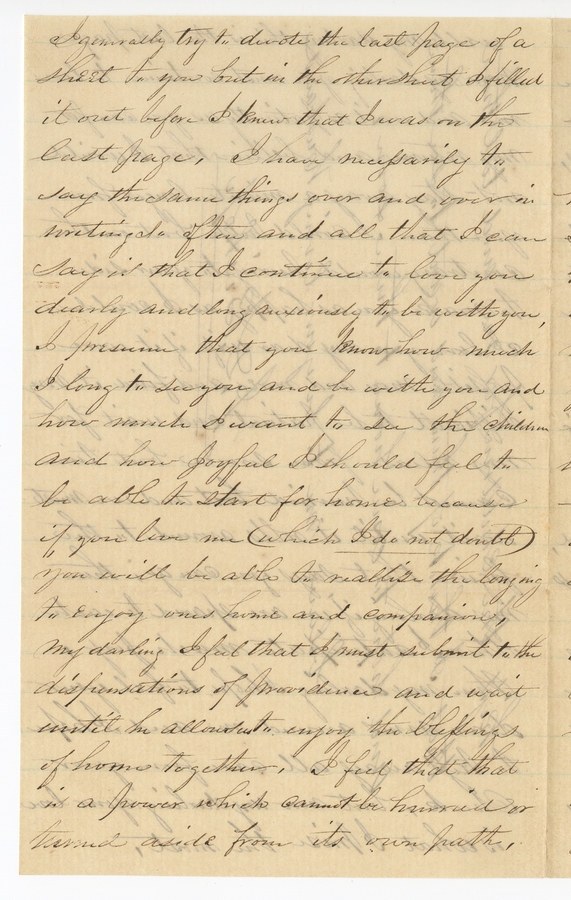 I generally try to devote the last page of a
sheet to you but in the other sheet I filled
it out before I knew that I was on the
last page. I have necessarily to
say the same things over and over in
writing so often and all that I can
say is that I continue to love you
dearly and long anxiously to be with you,
I presume that you know how much
I long to see you and be with you and
how much I want to see the children
and how Joyful I should feel to
be able to start for home because
if you love me (which I do not doubt)
you will be able to reallise the longing
to enjoy ones home and companion,
my darling I feel that I must submit to the
dispensations of providence and wait
until he allows us to enjoy the blessings
of home together. I feel that that
is a power which cannot be hurried or
turned aside from its own path.